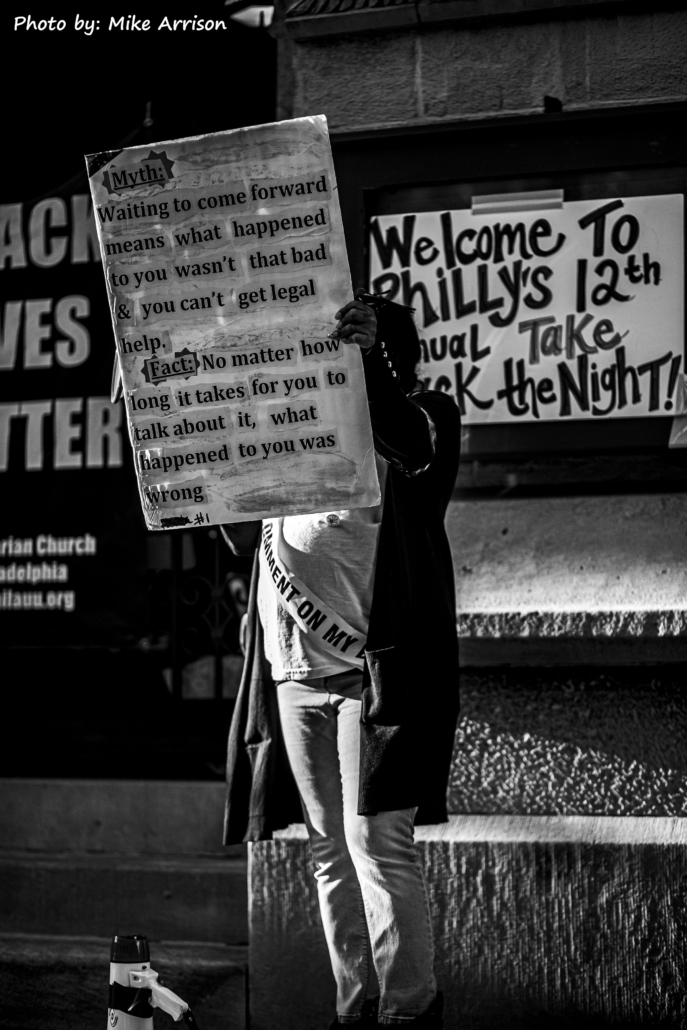 Photo by: Mike Arrison
Myth:
Waiting to come forward
means what happened
to you wasn't that bad
& you can't get legal
help.
Fact: No matter how
long it takes for you to
talk about it, what
happened to you was
wrong
#1
Welcome To
Philly's 12th
nual Take
ck the Night!
ACK
VES
TTER
rian Church
adelphia
ilauu.org
OMMENT ON MY